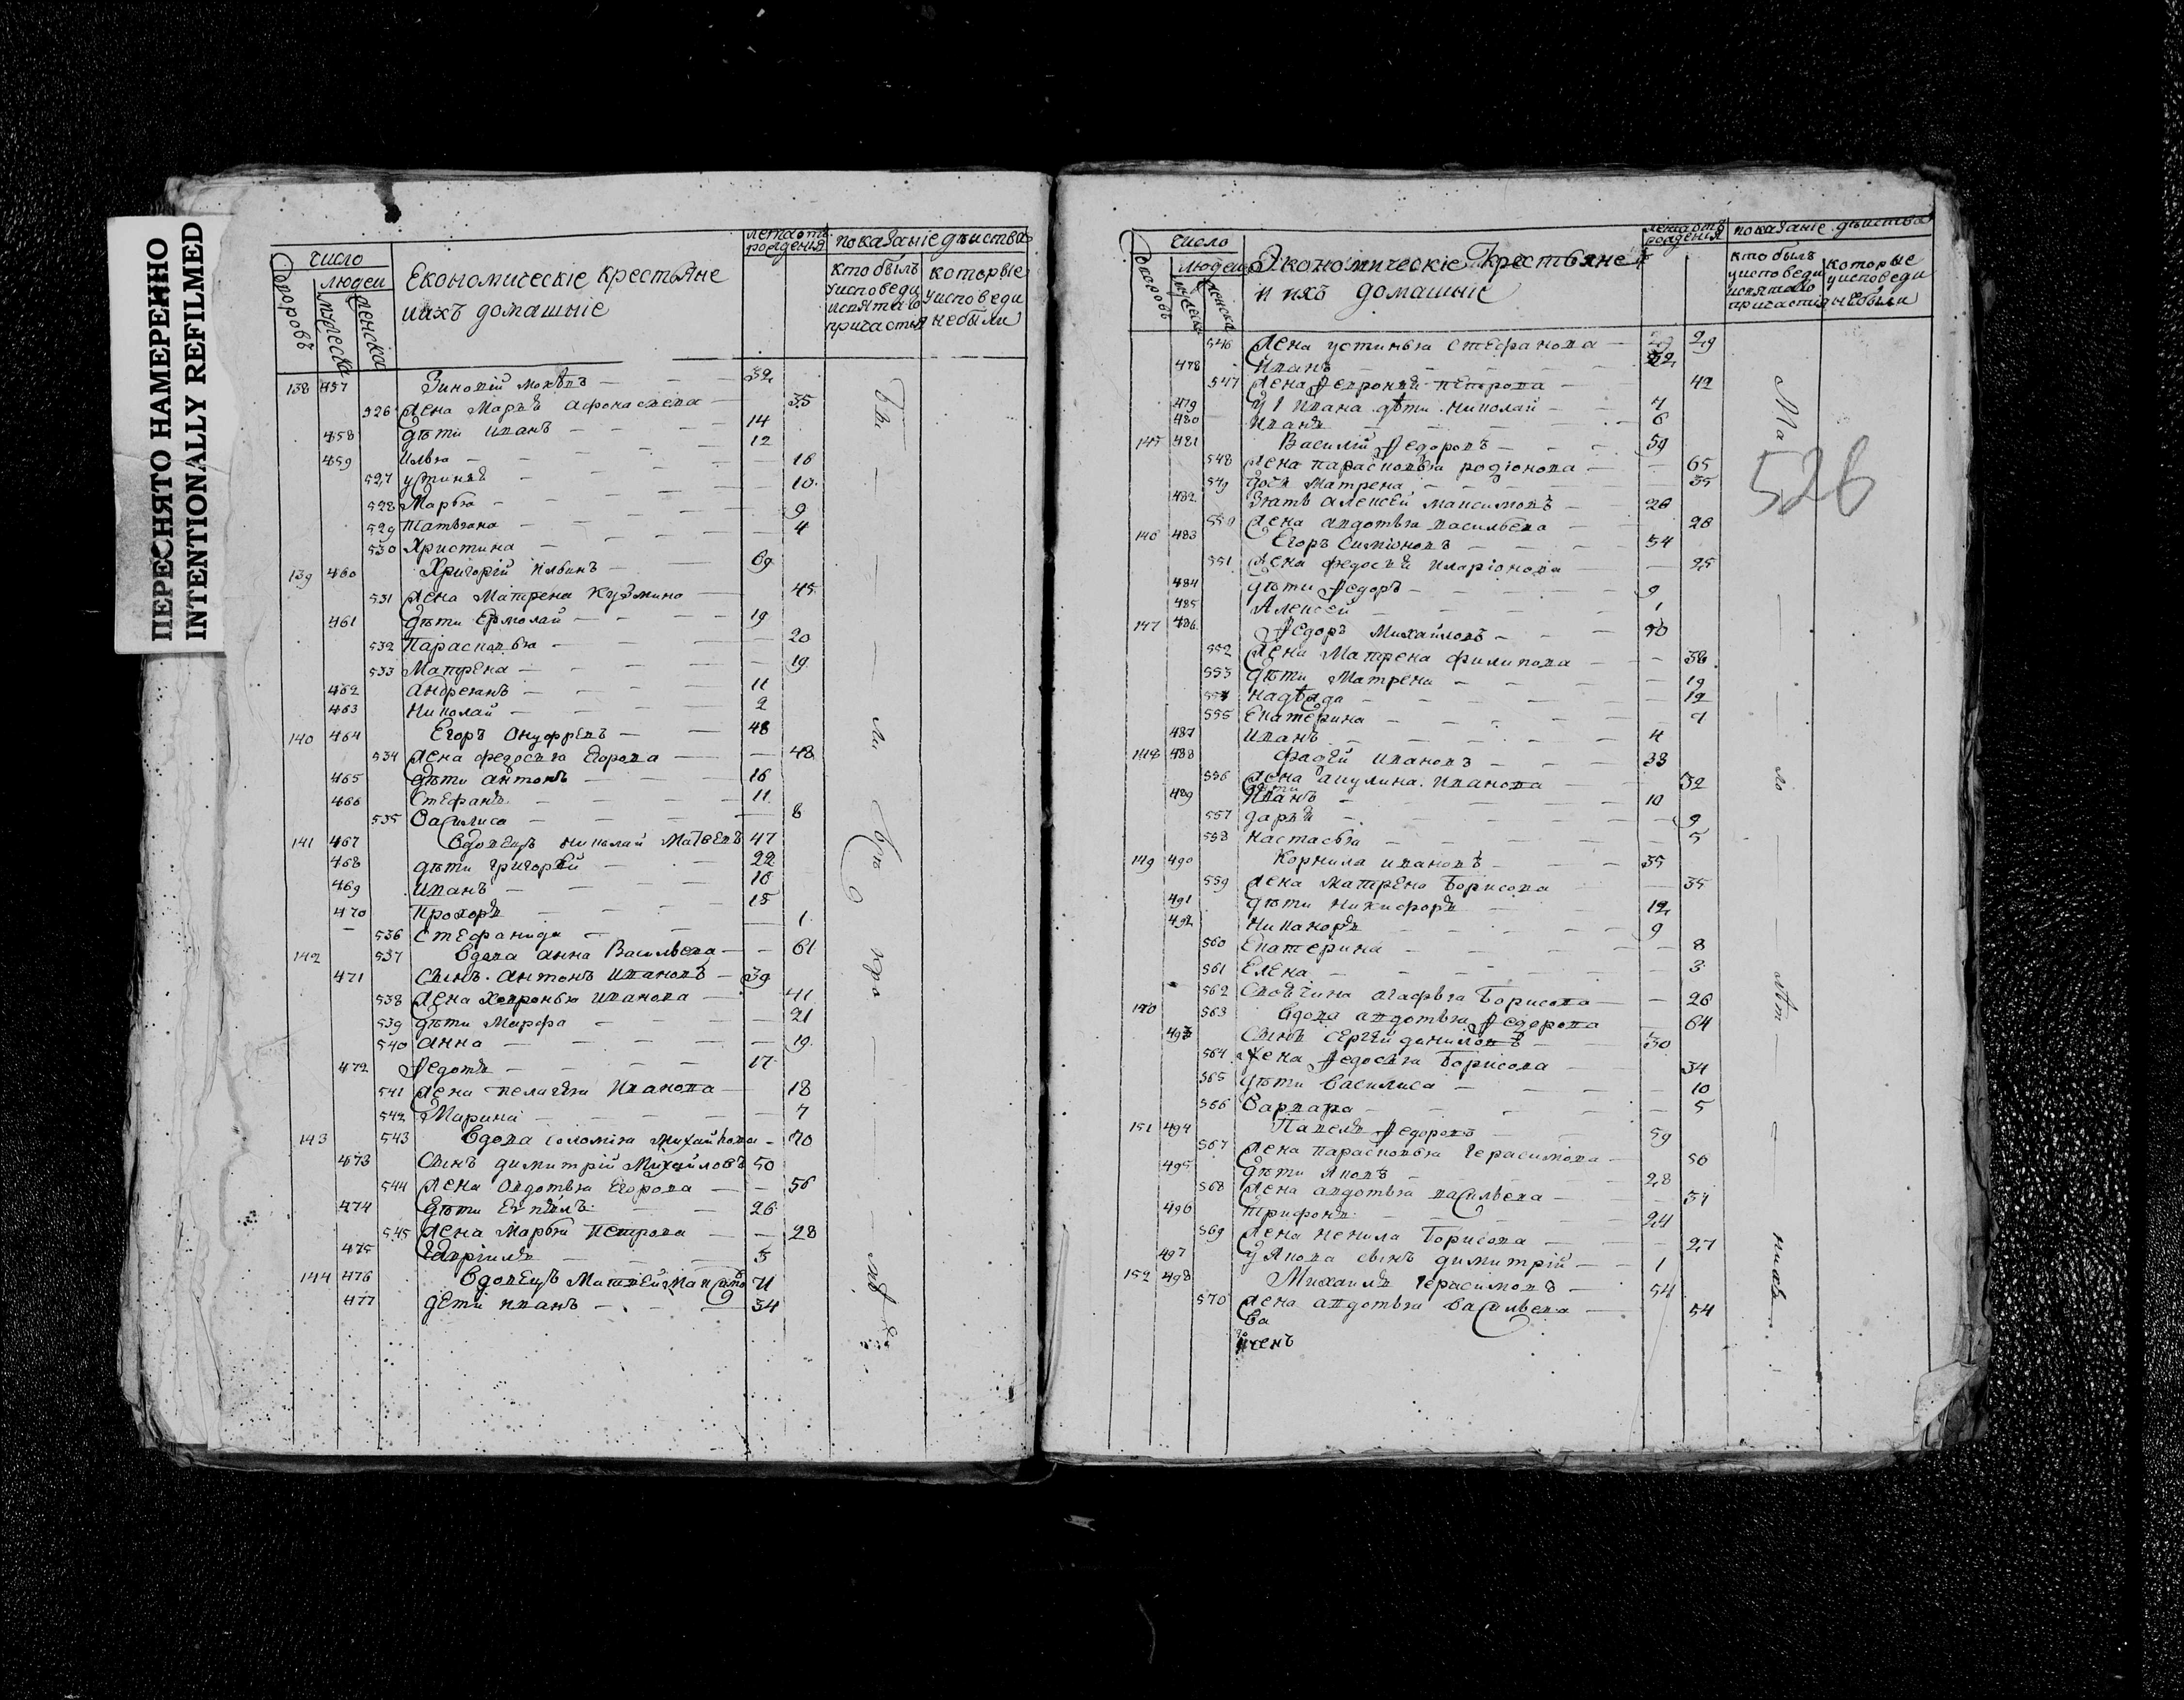 ПЕРЕСНЯТО НАМЕРЕННО
INTENTIONALLY REFILMED
число
дворовъ
людей
мужеска
женска
Економическіе крестьяне
иихъ домашніе
лета отъ
рожденія
показаніе действа
кто былъ
уисповеди
исвятаго
причастья
которые
уисповеди
небыли
138 457 Зиновій 32
526 жена Марья Афонасьева 35
458 дѣти иванъ 14
459 Илья 12
527 устинья 16
528 Марья 10
529 Татьяна 9
530 Христина 4
139 460 Григорій Ильинъ 69
531 жена Матрена Кузмина 45
461 дѣти Ермолай 19
532 Парасковья 20
533 Матрена 19
462 андреянъ 11
463 Николай 2
140 464 Егоръ Ануфревъ 48
534 жена федосья Егорова 48
465 дѣти антонъ 16
466 Стефанъ 11
535 Василиса 8
141 467 вдовецъ николай Матвевъ 47
468 дѣти григорей 22
469 иванъ 16
470 Прохоръ 15
536 Стефанида 1
142 537 вдова анна Васильева 61
471 сынъ антонъ Ивановъ 39
538 жена Хевронья иванова 41
539 дѣти Марфа 21
540 анна 19
472 Федотъ 17
541 жена пелагея Иванова 18
542 Марина 7
143 543 вдова соломія Михайлова 70
473 сынъ димитрій Михайловъ 50
544 жена Авдотья Егорова 56
474 дѣти 26
545 жена Марья Петрова 28
475 Гавріилъ 5
144 476 вдовецъ Матвей 71
477 дети иванъ 34
были у сего
число
дворовъ
людей
мужеска
женска
Экономическіе Крестьяне
и ихъ домашніе
лета отъ
рожденія
показаніе действа
кто былъ
уисповеди
исвятаго
причастія
которые
уисповеди
небыли
526
546 жена устинья Стефанова 29
478 Иванъ 32
547 жена Февронья Петрова 42
479 У 1 Ивана дѣти Николай 7
480 Иванъ 6
145 481 Василій Федоровъ 59
548 жена парасковья родіонова 65
549 дочь Матрена 35
482 Зять алексей максимовъ 26
550 жена авдотья васильева 26
146 483 Егоръ Симіоновъ 54
551 жена федосья иларіонова 25
484 дѣти Федоръ 9
485 Алексей 1
147 486 Федоръ Михайловъ 40
552 жена Матрена филипова 38
553 дѣти Матрена 19
554 надѣжда 12
555 Екатерина 9
487 иванъ 4
148 488 фадей ивановъ 33
556 жена акулина Иванова 32
489 дѣти Иванъ 10
557 дарья 9
558 настасья 5
149 490 Корнила ивановъ 35
559 жена матрена Борисова 35
491 дѣти никифоръ 12
492 Никаноръ 9
560 Екатерина 8
561 Елена 3
562 Своячина агафья Борисова 26
150 563 вдова авдотья Федорова 64
493 сынъ сергей даниловъ 30
564 жена Федосья Борисова 34
565 дѣти василиса 10
566 Варвара 5
151 494 Павелъ Федоровъ 59
567 жена парасковья Герасимова 56
495 дѣти Яковъ 28
568 жена авдотья васильева 37
496 трифонъ 24
569 жена ненила Борисова 27
497 У Якова сынъ димитрій 1
152 498 Михаилъ Герасимовъ 54
570 жена авдотья васильева 54
свя
щенъ
Ма ло лет никъ